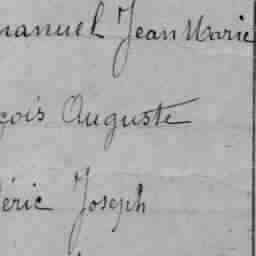 manuel Jean Marie
çois Auguste
éric Joseph